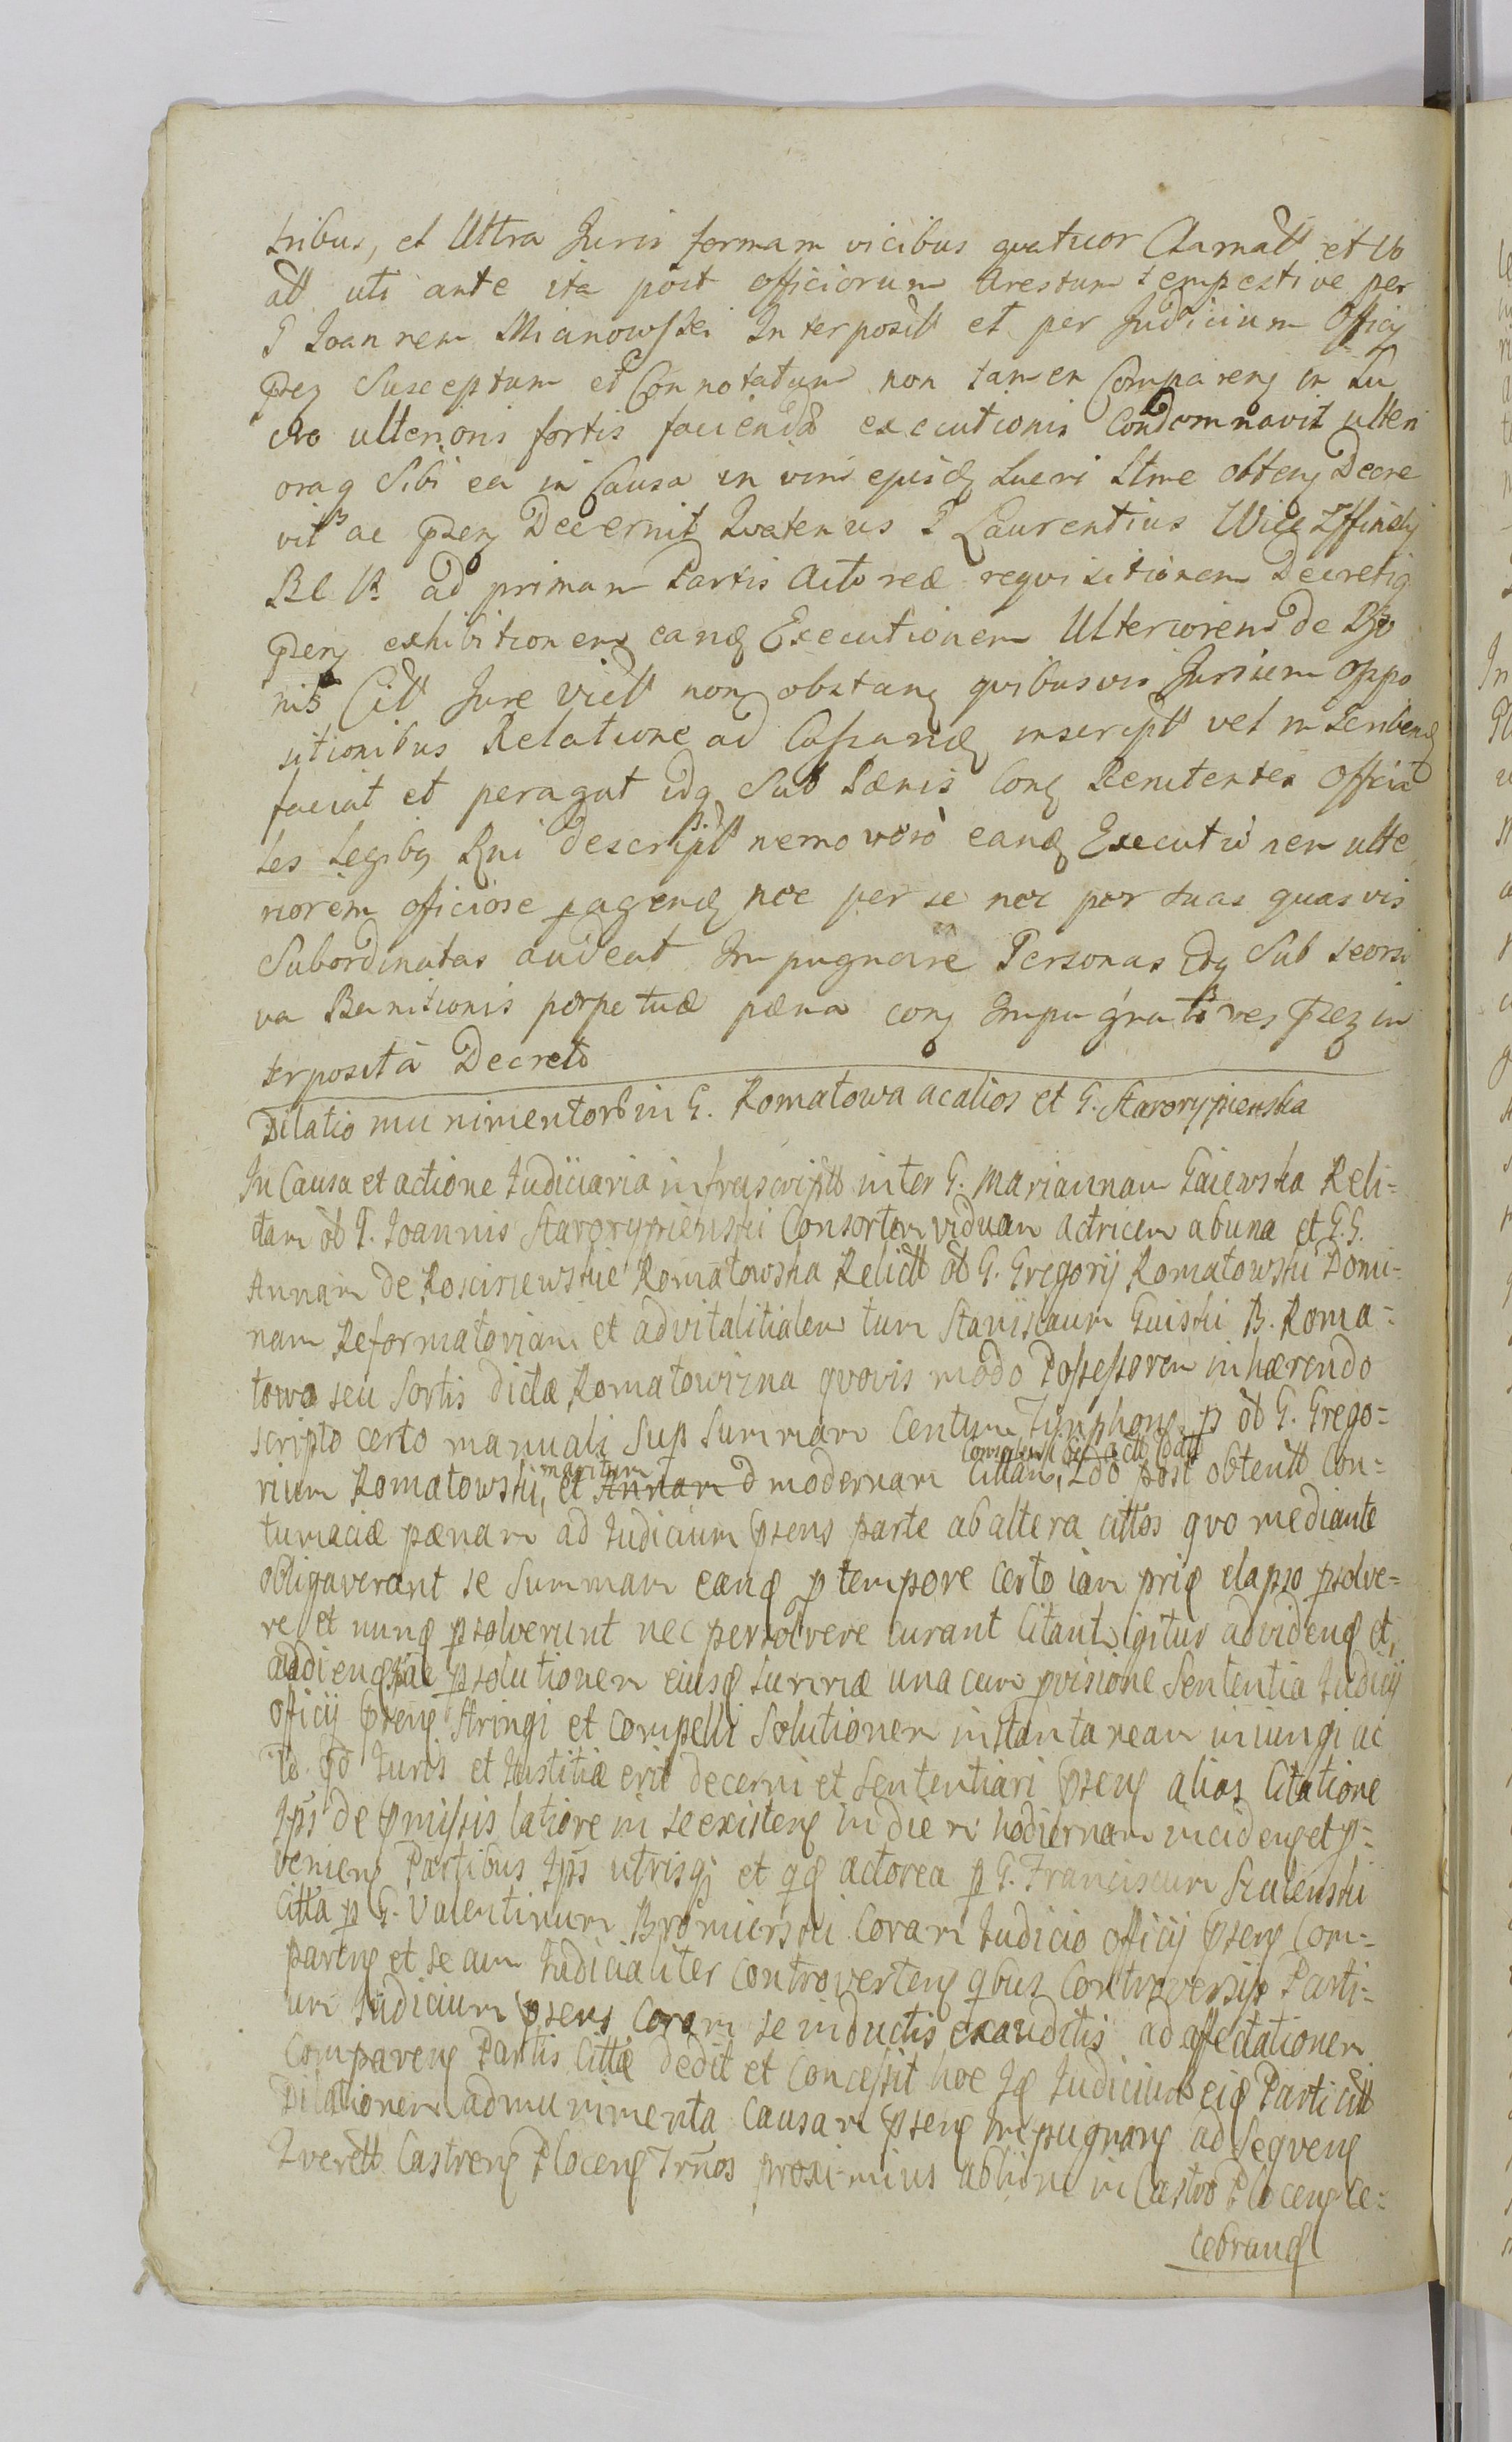 tribus, et Ultra Juris formam vicibus quatuor Clamatt et Vo
att uti ante ita post officiorum Arestum tempestive per
G Joannem Mianowski Interposit et per Judicium Officij
pns Susceptum et Connotatum non tamen Comparens in Lu
cro ulterioris fortis faciendæ executionis Condemnavit ulteri
oraq Sibi ea in Causa in vim ejusd lucri obtens Decre
vit ac pns Decernit Quatenus G Laurentius Wice
ad primam Partis Actoreæ requisitionem Decretiq
pns exhibitionem eand Executionem Ulteriorem de
nis Citt Jure Victt non obstans quibusvis Jurium oppo
sitionibus Relatione ad Cassand inscriptt vel inscribend
faciat et peragat idq Sub Pænis Cong Renitentes officia
les Legibq Rni descriptt nemo vero eand Executionem ulte
riorem officiose pagend nec per se nec per suas quasvis
Subordinatas audeat Impugnare Personas Idq Sub seorsi
va Bannitionis perpetuæ pæna cong Impugnatores pns in
terposita Decreto
Dilatio munimentor in G. Romatowa ac alios et G. Starorypienska
In Causa et actione Judiciaria infrascriptt inter G. Mariannam Gaiewska Reli-
ctam ol G. Joannis Starorypienski Consortem viduam actricem ab una et G.G.
Annam de Kosciszewskie Romatowska Relictt ol G. Gregorij Romatowski Domi-
nam Reformatoriam et advitalitialem tum Stanislaum Guiski B. Roma-
towo seu Sortis dictæ Romatowizna quovis modo Possessorem inhærendo
scripto certo manuali Sup Summam Centum Tynphons p ol G. Grego-
rium Romatowski, maritum et Annam d modernam Cittam, post obtentt Con-
tumaciæ pænam ad Judicium psens parte ab altera cittos quo mediante
obligaverant se Summam eand p tempore certo iam priq elapso psolve-
re et nunq psolverunt nec persolvere curant Citant igitur ad videnq et,
audienq psolutionem eiusq Summæ una cum pvisione Sententia Judicij
Officij psens Stringi et Compelli Solutionem instantaneam iniungi ac
id qd Juris et Justitiæ erit decerni et Sententiari psens alias Citatione
Jps de pmissis latiore in se existens in diem hodiernam incidens et p-
veniens Partibus Jps utrisq et qd actorea p G. Franciscum Szulenski
Citta p G. Valentinum Bromierski Coram Judicio officij psens Com-
parens et se cum Judicialiter Controvertens qbus Controversijs Parti-
um Judicium psens Coram se inductis exauditis ad affectationem
Comparens Partis Cittæ dedit et Concessit hoc Jd Judicium eid Parti citt
Dilationem ad munimenta Causam psens Impugnans ad Sequens
Querell Castrens Plocens Trnos proximius ablione in Castro Plocens Ce-
lebrand